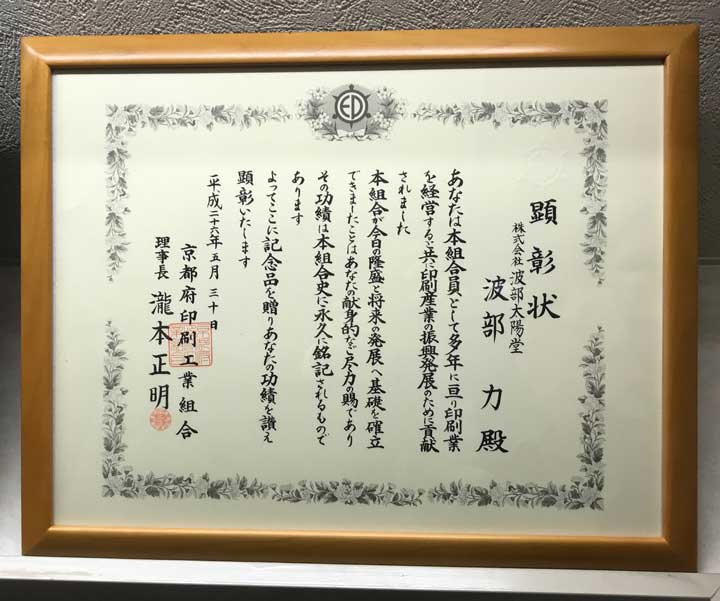 顕彰状
株式会社 波部太陽堂
波部 力 殿
あなたは本組合員として多年に亘り印刷業
を経営すると共に印刷産業の振興発展のために貢献
されました
本組合が今日の隆盛と将来の発展へ基礎を確立
できましたことはあなたの献身的なご尽力の賜であり
その功績は本組合史に永久に銘記されるもので
あります
よってここに記念品を贈りあなたの功績を讃え
顕彰いたします
平成二十六年五月三十日
京都府印刷工業組合
理事長 瀧本正明